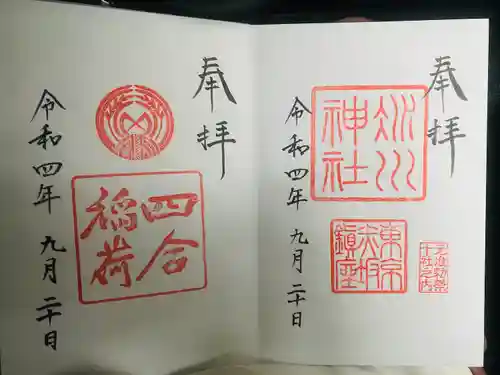 奉拝
氷川
神社
東京
赤坂
鎮座
准勅祭
十社之内
令和四年 九月二十日
奉拝
四合
稲荷
令和四年 九月二十日